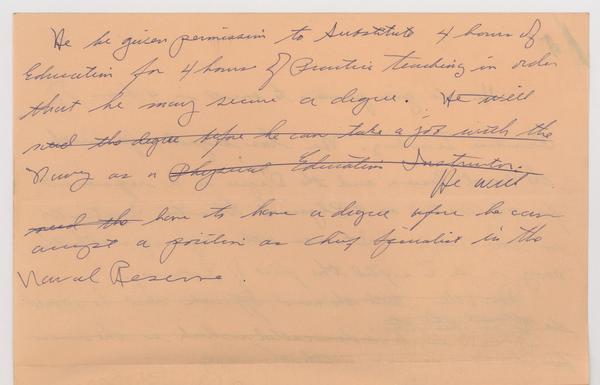 He be given permission to Substitute 4 hours of
Education for 4 hours of Practice teaching in order
that he may secure a degree. He will
need the degree before he can take a job with the
Navy as a Physical Education Instructor.
He will
need the have to have a degree before he can
accept a position as Chief Specialist in the
Naval Reserve.